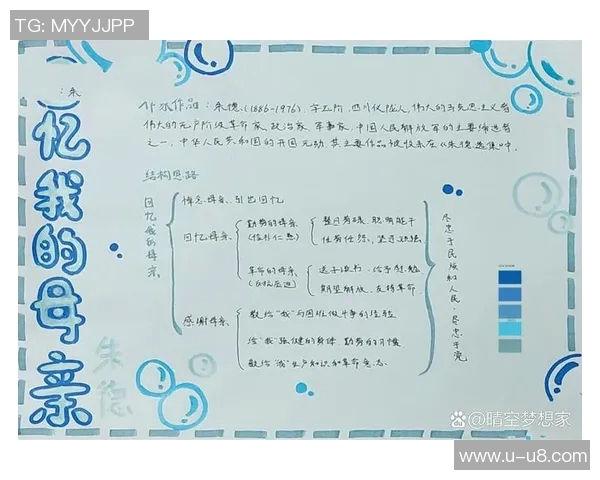 TG: MYYJJPP
：朱
忆我的母亲
朱德
作品：朱德(1886-1976)，字玉阶，四川仪陇人，伟大的马克思主义者
伟大的无产阶级革命家、政治家、军事家，中国人民解放军的主要缔造者
之一，中华人民共和国的开国元勋，其主要作品被收录在《朱德选集》中。
结构思路
回忆我的母亲
悼念母亲，引出回忆
回忆母亲
勤劳的母亲
整日劳碌，聪明能干
任劳任怨，
革命的母亲
送子读书，给予慰勉
期望解放，支持革命
感谢母亲
教给“我”与困难做斗争的经验
给“我”强健的身体 勤劳的习惯
教给“我”生产知识和革命意志
尽忠于民族和人民，尽忠于党
Bai百度
@晴空梦想家
www.u-u8.com